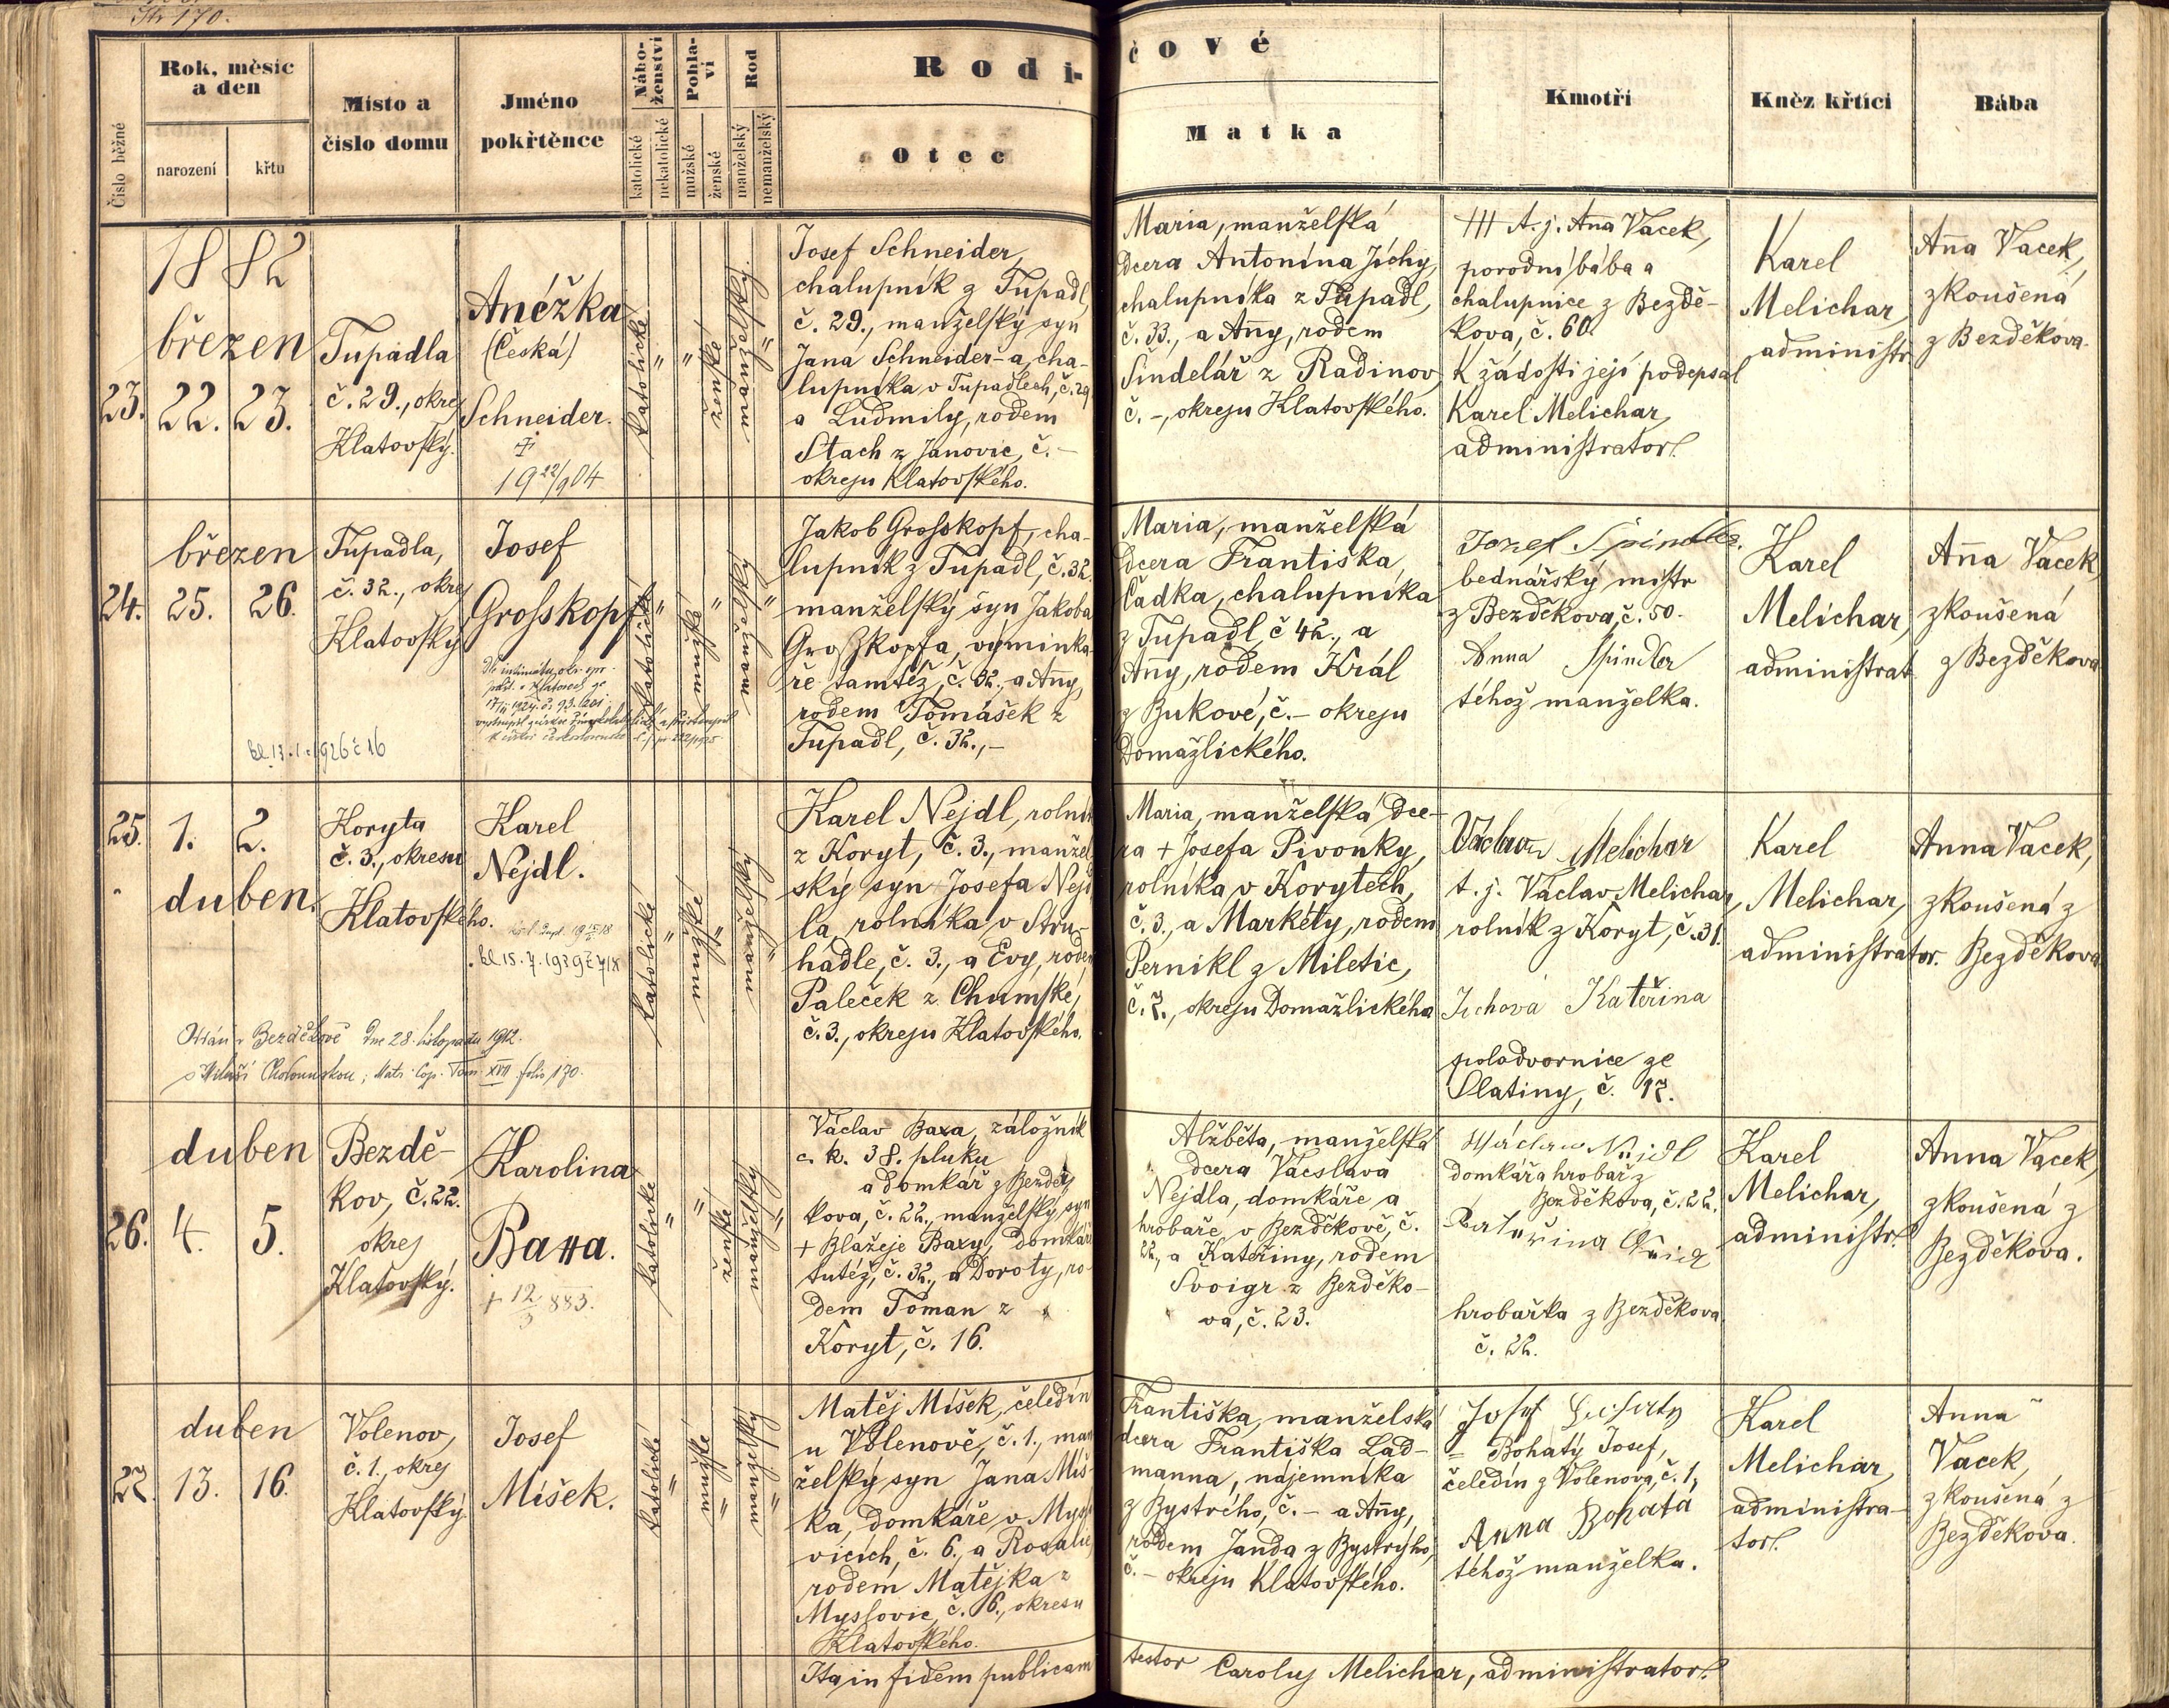 Str 170.
Číslo běžné
Rok, měsíc
a den
narození
křtu
Místo a
číslo domu
Jméno
pokřtěnce
Nábo-
ženství
katolické
nekatolické
Pohla-
ví
mužské
ženské
Rod
manželský
nemanželský
Rodi-
Otec
čové
Matka
Kmotři
Kněz křtící
Bába
23.
1882
březen
22. 23.
Tupadla
č. 29., okrej
Klatovský.
Anéžka
(Česká)
Schneider.
†
19 22/9 04
katolické
"
"
ženské
manželský
"
Josef Schneider,
chalupník z Tupadl,
č. 29., manželský syn
Jana Schneider-a, cha-
lupníka v Tupadlech, č. 29
a Ludmily, rodem
Stach z Janovic, č. –
okreju Klatovského.
Maria, manželská
dcera Antonína Jíchy,
chalupníka z Tupadl,
č. 33., a Anny, rodem
Šindelář z Radinov,
č. –, okreju Klatovského.
+++ t. j. Anna Vacek,
porodní bába a
chalupnice z Bezdě-
kova, č. 60.
K žádosti její podepsal
Karel Melichar,
administrator.
Karel
Melichar,
administr.
Anna Vacek,
zkoušená
z Bezděkova.
24.
březen
25. 26.
Tupadla,
č. 32., okrej
Klatovský
Josef
Grosskopf
bl. 13. 1. 1926 č 16
katolické
"
mužské
"
manželský
"
Jakob Grosskopf, cha-
lupník z Tupadl, č. 32
manželský syn Jakoba
Groszkopfa, vyminka-
ře tamtéž, č. 32., a Anny,
rodem Tomášek z
Tupadl, č. 32., –
Maria, manželská
dcera Františka,
Čadka, chalupníka
z Tupadl, č 42., a
Anny, rodem Král
z Bukové, č. – okreju
Domažlického.
Josef Spindler.
bednářský mistr
z Bezděkova, č. 50.
Anna Spindler
téhož manželka.
Karel
Melichar,
administrat.
Anna Vacek,
zkoušená
z Bezděkova
25.
1. 2.
duben.
Koryta
č. 3., okresu
Klatovského.
Karel
Nejdl.
bl 15. 7. 1939 č 718
Oddán v Bezděkově dne 28. listopadu 1912.
Matr. Cop. Tom. XVII folio 170.
katolické
"
mužské
"
manželský
"
Karel Nejdl, rolník
z Koryt, č. 3., manžel-
ský syn Josefa Nejd
la, rolníka v Stru-
hadle, č. 3., a Evy, rodem
Paleček z Chumské,
č. 3., okreju Klatovského.
Maria, manželská dce-
ra + Josefa Pivonky,
rolníka v Korytech,
č. 3., a Markéty, rodem
Pernikl z Miletic,
č. 7., okreju Domažlického
Václav Melichar
t. j. Václav Melichar,
rolník z Koryt, č. 31.
Jichova Kateřina
polodvornice ze
Slatiny, č. 17.
Karel
Melichar,
administrator.
Anna Vacek,
zkoušená z
Bezděkova
26.
duben
4. 5.
Bezdě-
kov, č. 22.
okrej
Klatovský.
Karolina
Baxa.
+ 12/3 883.
katolické
"
"
ženské
manželský
"
Václav Baxa, záložník
c. k. 38. pluku
a domkář z Bezdě-
kova, č. 22., manželský syn
+ Blažeje Baxy, domkáře
tutéž, č. 32., a Doroty, ro-
dem Toman z
Koryt, č. 16.
Alžběta, manželská
dcera Vácslava
Nejdla, domkáře a
hrobaře v Bezděkově, č.
22., a Kateřiny, rodem
Svoigr z Bezděko-
va, č. 23.
Wáclaw Nejdl
domkář a hrobař z
Bezděkova, č. 22.
hrobařka z Bezděkova
č. 22.
Karel
Melichar,
administr.
Anna Vacek,
zkoušená z
Bezděkova.
27.
duben
13. 16.
Volenov,
č. 1., okrej
Klatovský.
Josef
Míšek.
katolické
"
mužské
"
manželský
"
Matěj Míšek, čeledín
u Volenově, č. 1., man
želský syn Jana Míš-
ka, domkáře v Mysl
vicích, č. 6., a Rosalie,
rodem Matějka z
Myslovic, č. 6., okresu
Klatovského.
Františka, manželská
dcera Františka Lad-
manna, nájemníka
z Bystrého, č. – a Anny,
rodem Janda z Bystrýho,
č. – okreju Klatovského.
= Bohatý Josef,
čeledín z Volenova, č. 1,
Anna Bohata
téhož manželka.
Karel
Melichar,
administra-
tor.
Anna
Vacek,
zkoušená z
Bezděkova.
Ita in fidem publicam
testor Caroluj Melichar, administrator.